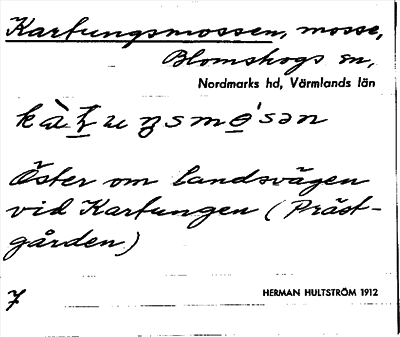 Kartungsmossen, mosse,
Blomskogs sn,
Nordmarks hd, Värmlands län
Öster om landsvägen
vid Kartungen (Präst-
gården)
7
HERMAN HULTSTRÖM 1912